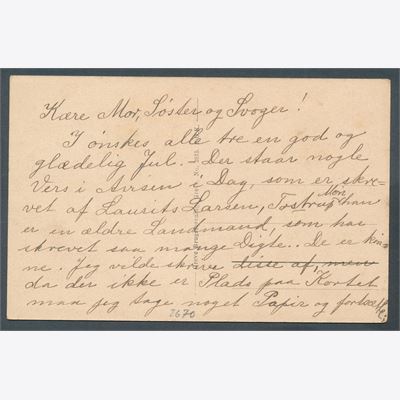 Kære Mor, Søster og Svoger!
I ønskes alle tre en god og
glædelig Jul. Der staar nogle
Vers i Avisen i Dag, som er skre-
vet af Laurits Larsen, Tostrup Mön, han
er en ældre Landmand, som har
skrevet saa mange Digte. De er køn-
ne. Jeg vilde skrive disse af, men
da der ikke er Plads paa Kortet
maa jeg tage noget Papir og fortsætte;
2670